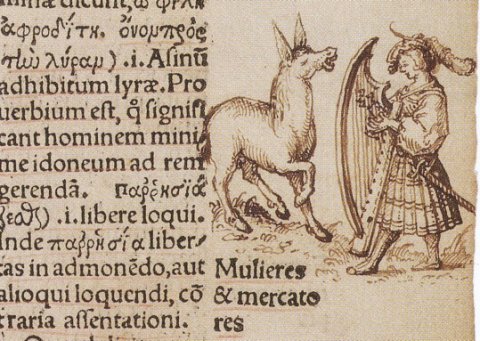 dicunt, ὦ φίλη
ἀφροδίτη. ὄνομπρὸς
τὴν λύραμ) .i. Asinū
adhibitum lyræ. Pro
uerbium est, ꝙ signifi
cant hominem mini
me idoneum ad rem
gerendā. παῤῥησιά
.i. libere loqui.
inde παῤῥησία liber
tas in admonēdo, aut
alioqui loquendi, cō
traria assentationi.
Mulieres
& mercato
res